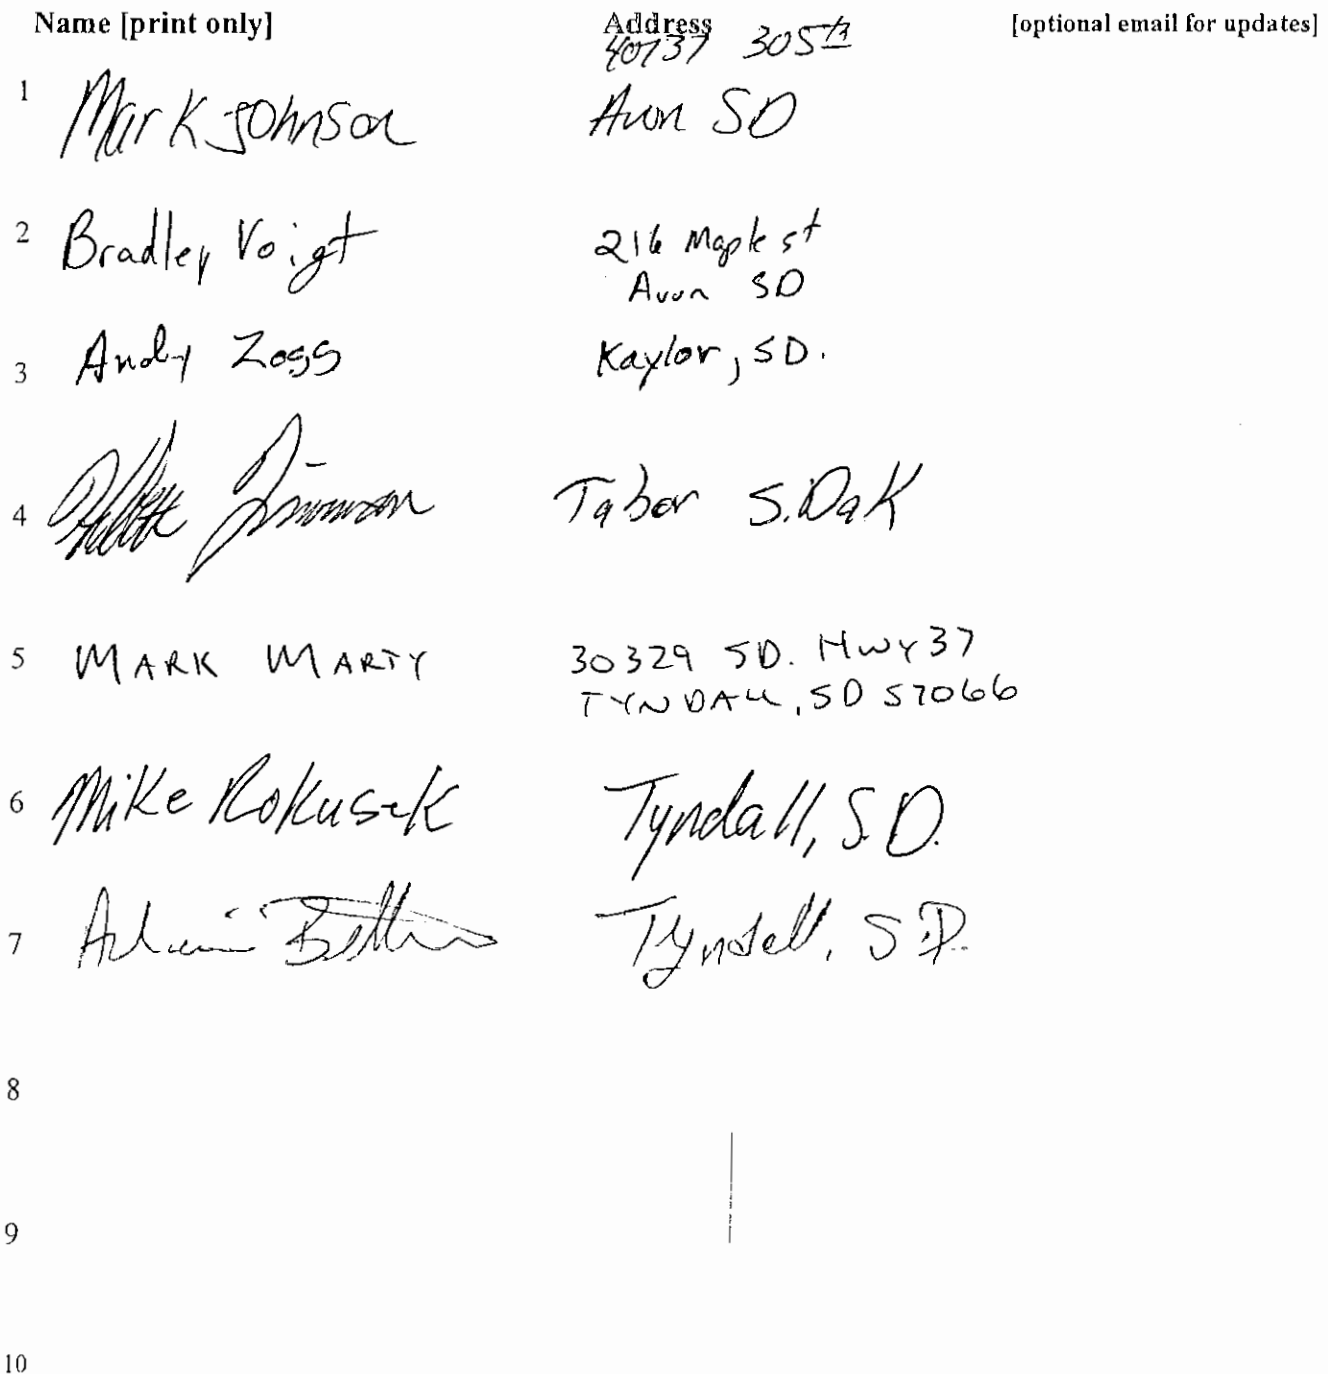 Name [print only] Address [optional email for updates]
40737 305th
1 Mark Johnson Avon SD
2 Bradley Voigt 216 Maple st
Avon SD
3 Andy Zoss Kaylor, SD.
4 Tabor S.Dak
5 MARK MARTY 30329 SD. HWY 37
TYNDALL, SD 57066
6 Mike Rokusek Tyndall, S.D.
7 Tyndall, S.D.
8
9
10